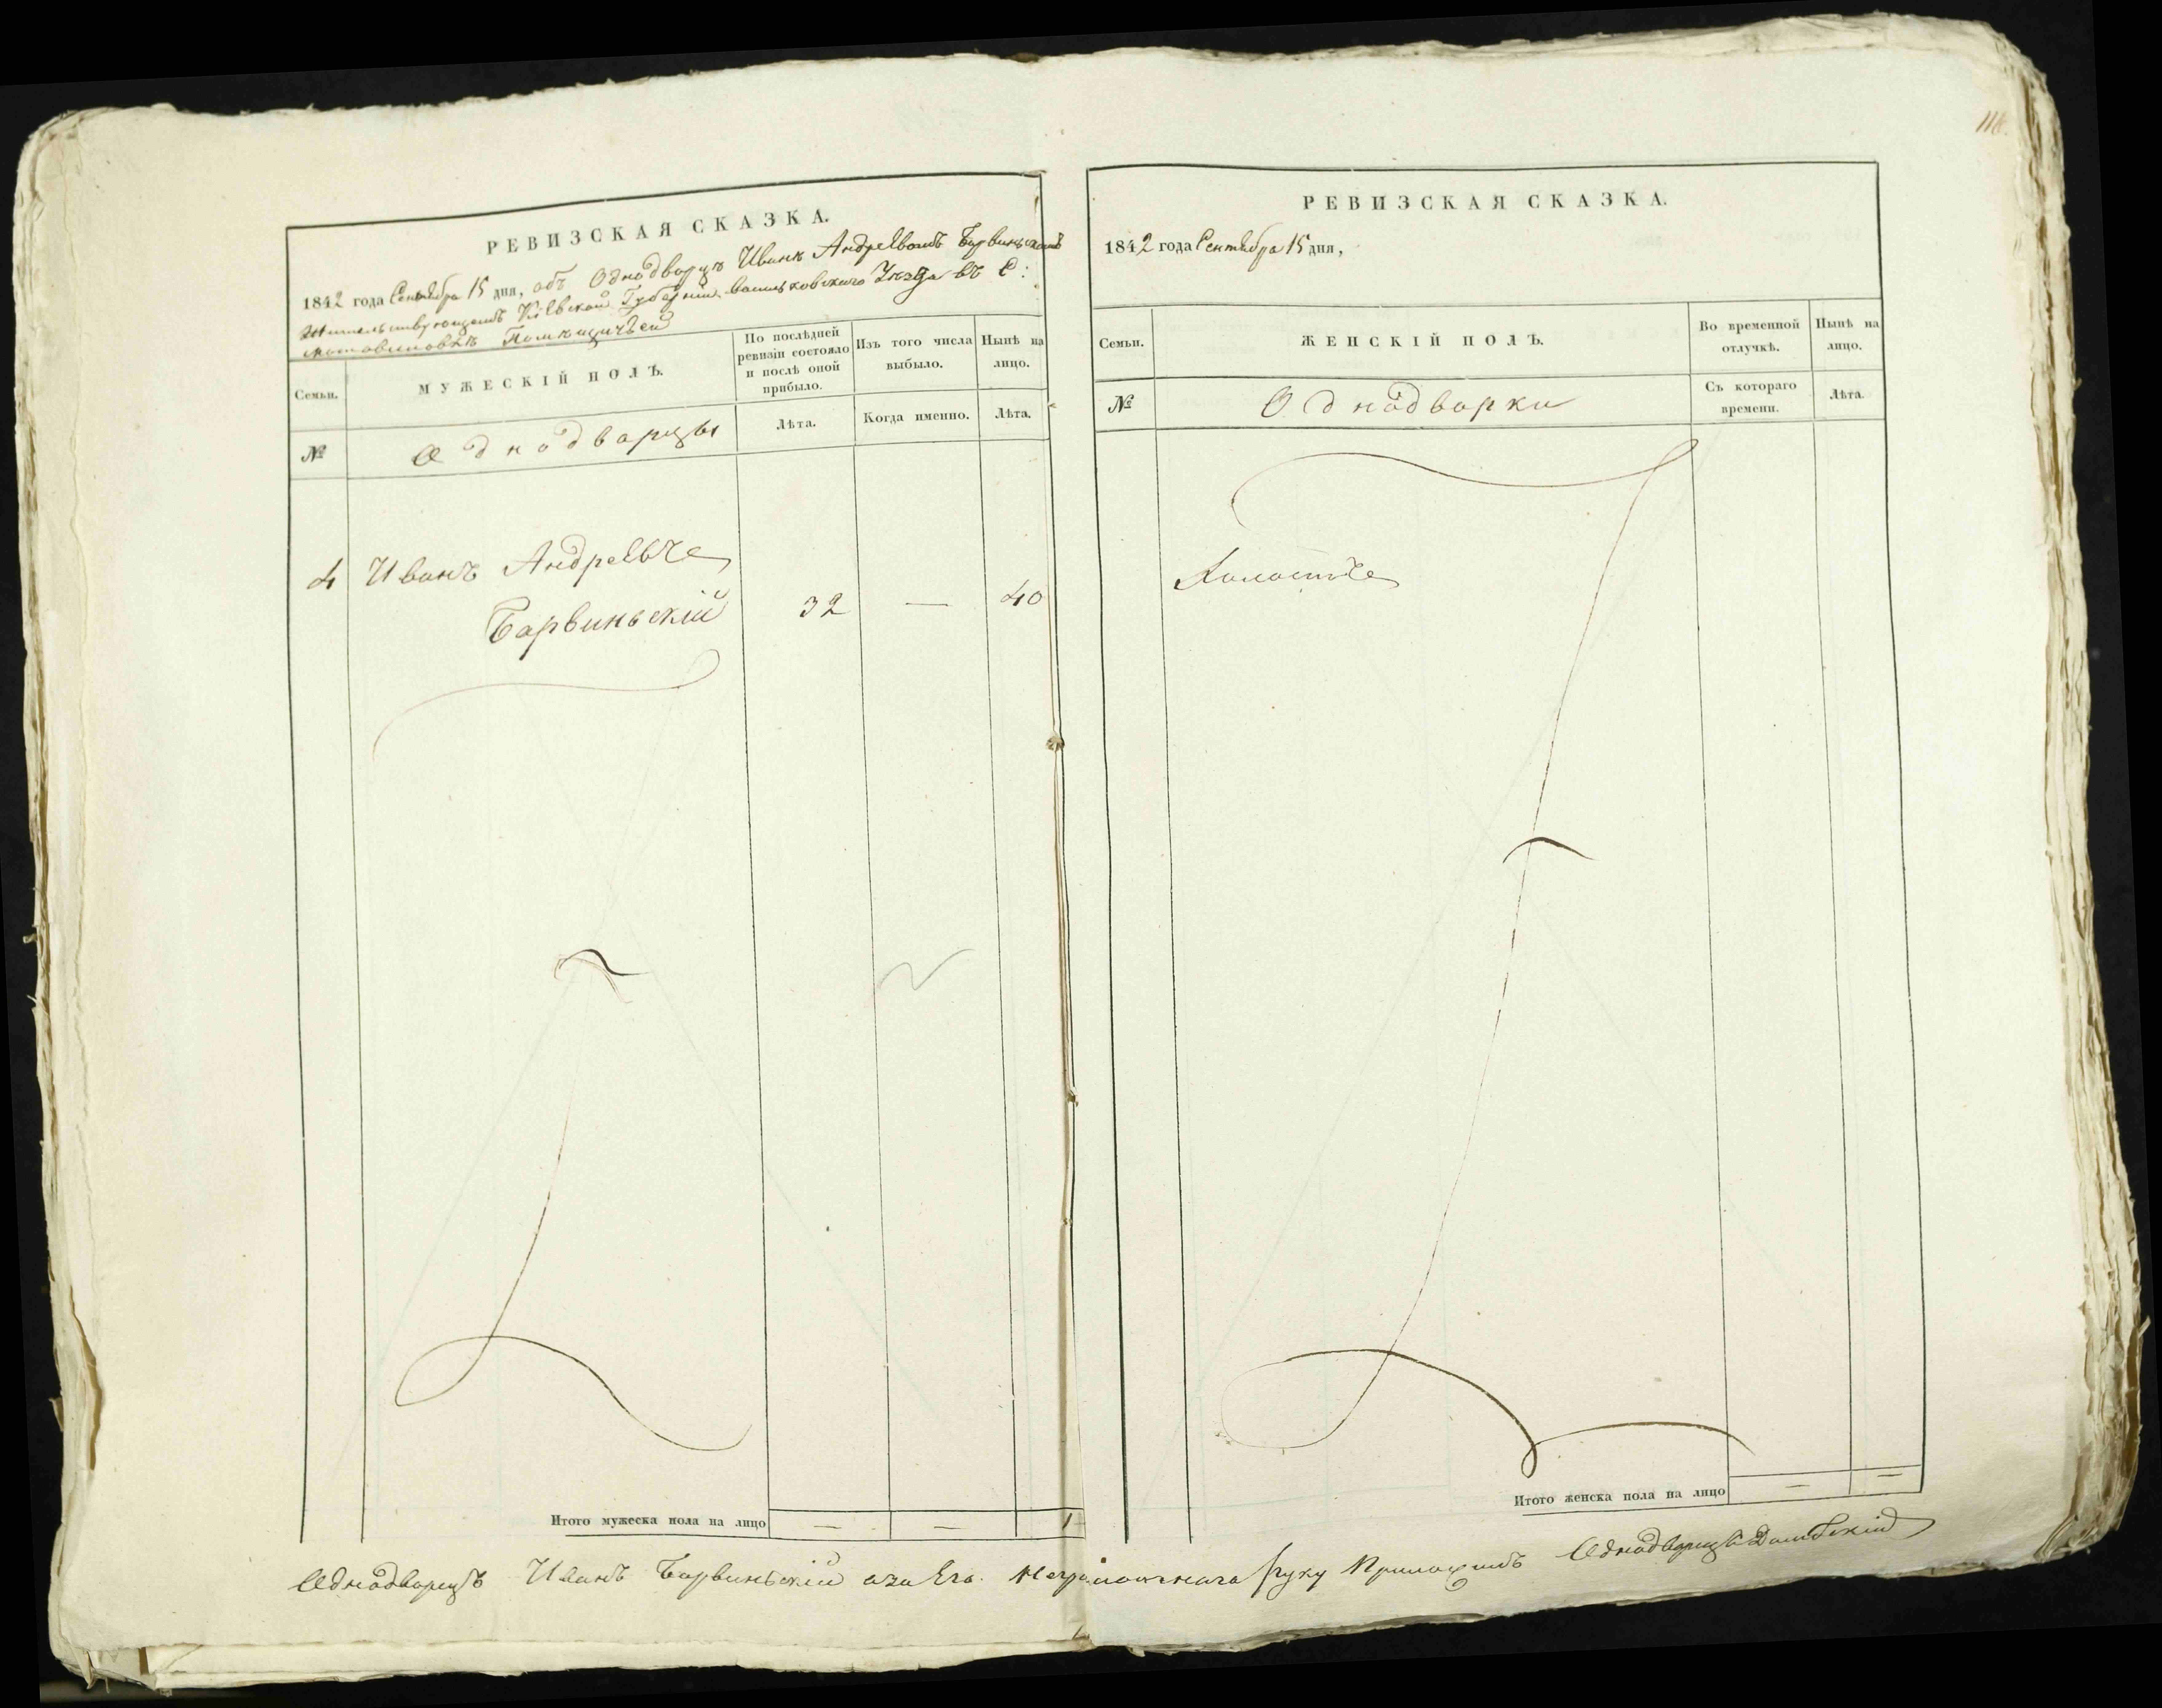 118.
РЕВИЗСКАЯ СКАЗКА.
1842 года Сентября 15 дня, объ Однодворцѣ Иванѣ Андреевомъ Барвиньскомъ
жительствующемъ Кіевской Губерніи Васильковского Уезда въ С:
Мотовиловкѣ Помѣщичъей
Семьи.
МУЖЕСКІЙ ПОЛЪ.
По послѣдней ревизіи состояло и послѣ оной прибыло.
Изъ того числа выбыло.
Нынѣ на лицо.
№
Однодворцы
Лѣта.
Когда именно.
Лѣта.
4 Иванъ Андреевъ
Барвиньскій 32 — 40
Итого мужеска пола на лицо — — 1
РЕВИЗСКАЯ СКАЗКА.
1842 года Сентября 15 дня,
Семьи.
ЖЕНСКІЙ ПОЛЪ.
Во временной отлучкѣ.
Нынѣ на лицо.
№
Однодворки
Съ котораго времени.
Лѣта.
Холостъ
Итого женска пола на лицо — —
Однодворецъ Иванъ Барвиньскій а за Его Неграмотного руку Приложилъ Однодворецъ